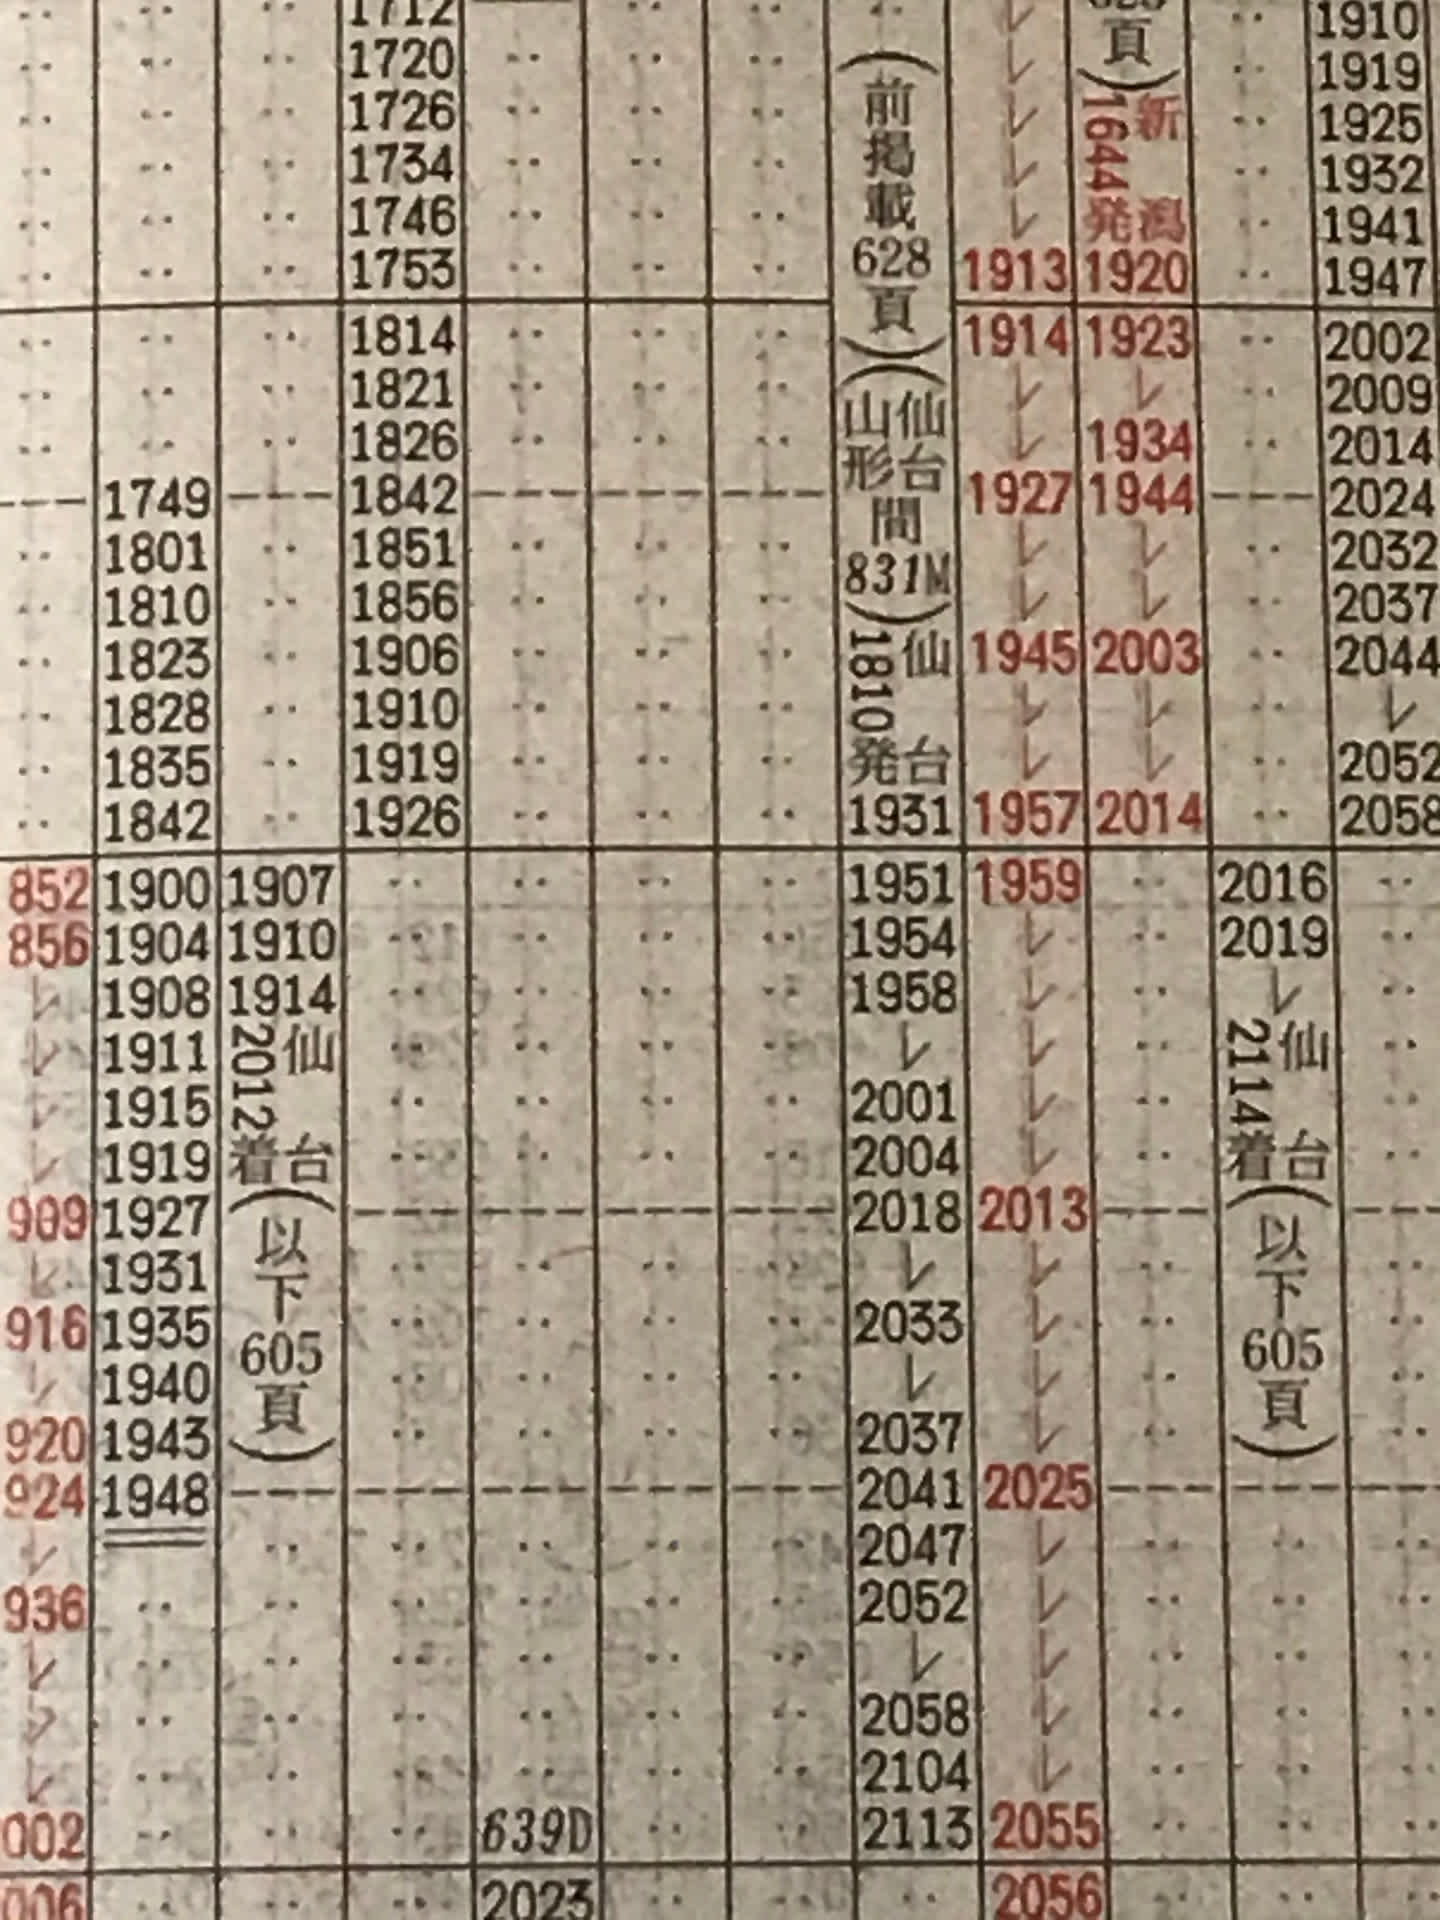 1712 頁 1910
1720 ( レ ) 1919
1726 前 レ 1644 新 1925
1734 掲 レ 1932
1746 載 レ 発 潟 1941
1753 628 1913 1920 1947
1814 頁 ) 1914 1923 2002
1821 ( レ レ 2009
1826 山 仙 レ 1934 2014
形 台
1749 1842 1927 1944 2024
1801 1851 間 レ レ 2032
1810 1856 831M レ レ 2037
1823 1906 ) 1810 仙 1945 2003 2044
1828 1910 レ レ レ
1835 1919 発 台 レ レ 2052
1842 1926 1931 1957 2014 2058
852 1900 1907 1951 1959 2016
856 1904 1910 1954 レ 2019
レ 1908 1914 1958 レ レ
レ 1911 2012 仙 レ レ 2114 仙
レ 1915 2001 レ
レ 1919 着 台 2004 レ 着 台
909 1927 ( 2018 2013 (
レ 1931 以 レ レ 以
下 下
916 1935 605 2033 レ 605
レ 1940 頁 レ レ 頁
920 1943 ) 2037 レ )
924 1948 2041 2025
レ 2047 レ
936 2052 レ
レ レ レ
レ 2058 レ
レ 2104 レ
002 639D 2113 2055
006 2023 2056